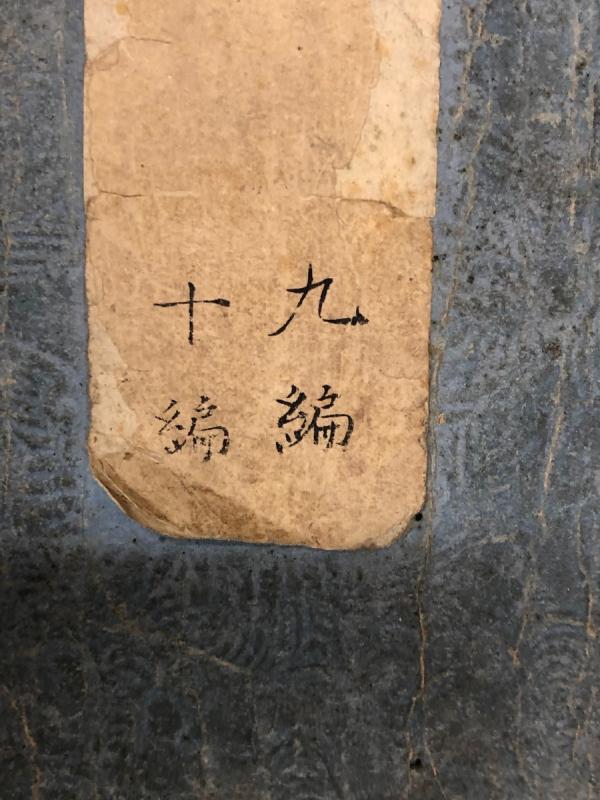 九編
十編